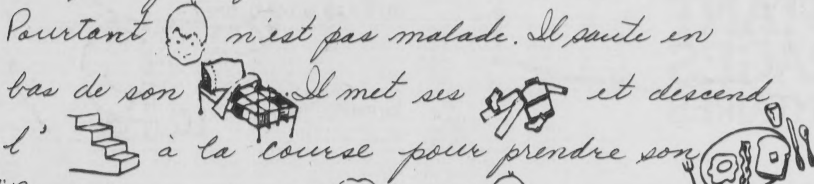 Pourtant n'est pas malade. Il saute en
bas de son . Il met ses et descend
l' à la course pour prendre son